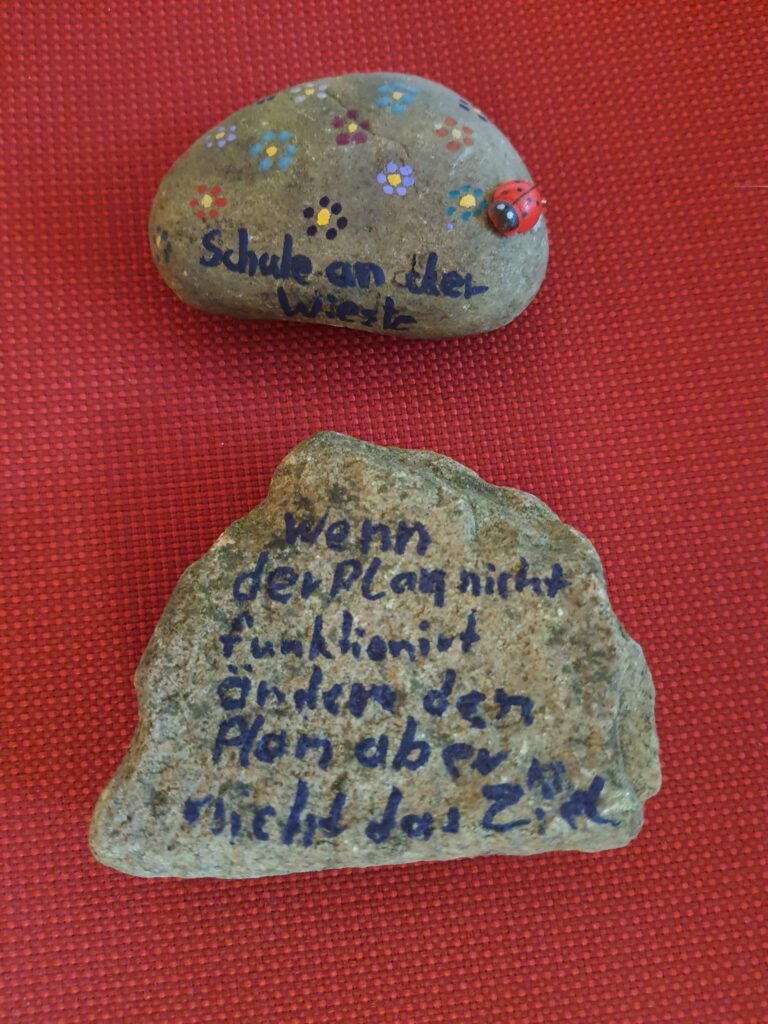 Schule an der
Wieste
Wenn
der Plan nicht
funktionirt
ändere den
Plan aber
nicht das Ziel